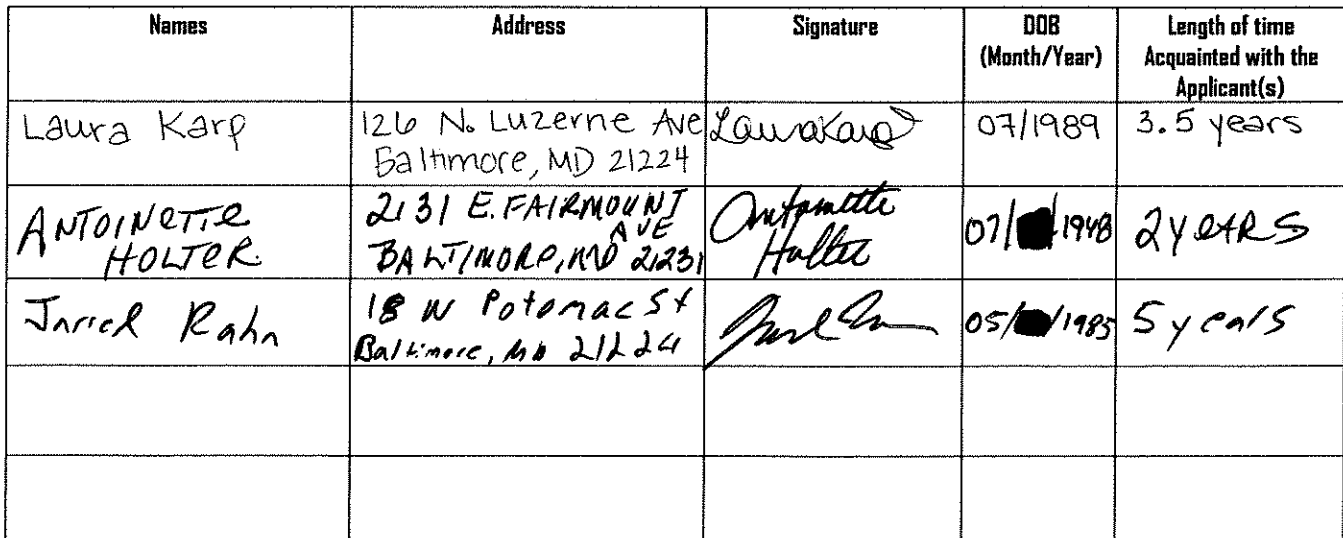 Names
Address
Signature
DOB
(Month/Year)
Length of time
Acquainted with the
Applicant(s)
Laura Karp
126 N. Luzerne Ave
Baltimore, MD 21224
Laura Karp
07/1989
3.5 years
ANTOINETTE
HOLTER
2131 E. FAIRMOUNT
AVE
BALTIMORE, MD 21231
Antoinette
Holter
07/ 1948
2 YEARS
Jarred Rahn
18 N Potomac St
Baltimore, MD 21224
05/ /1985
5 years